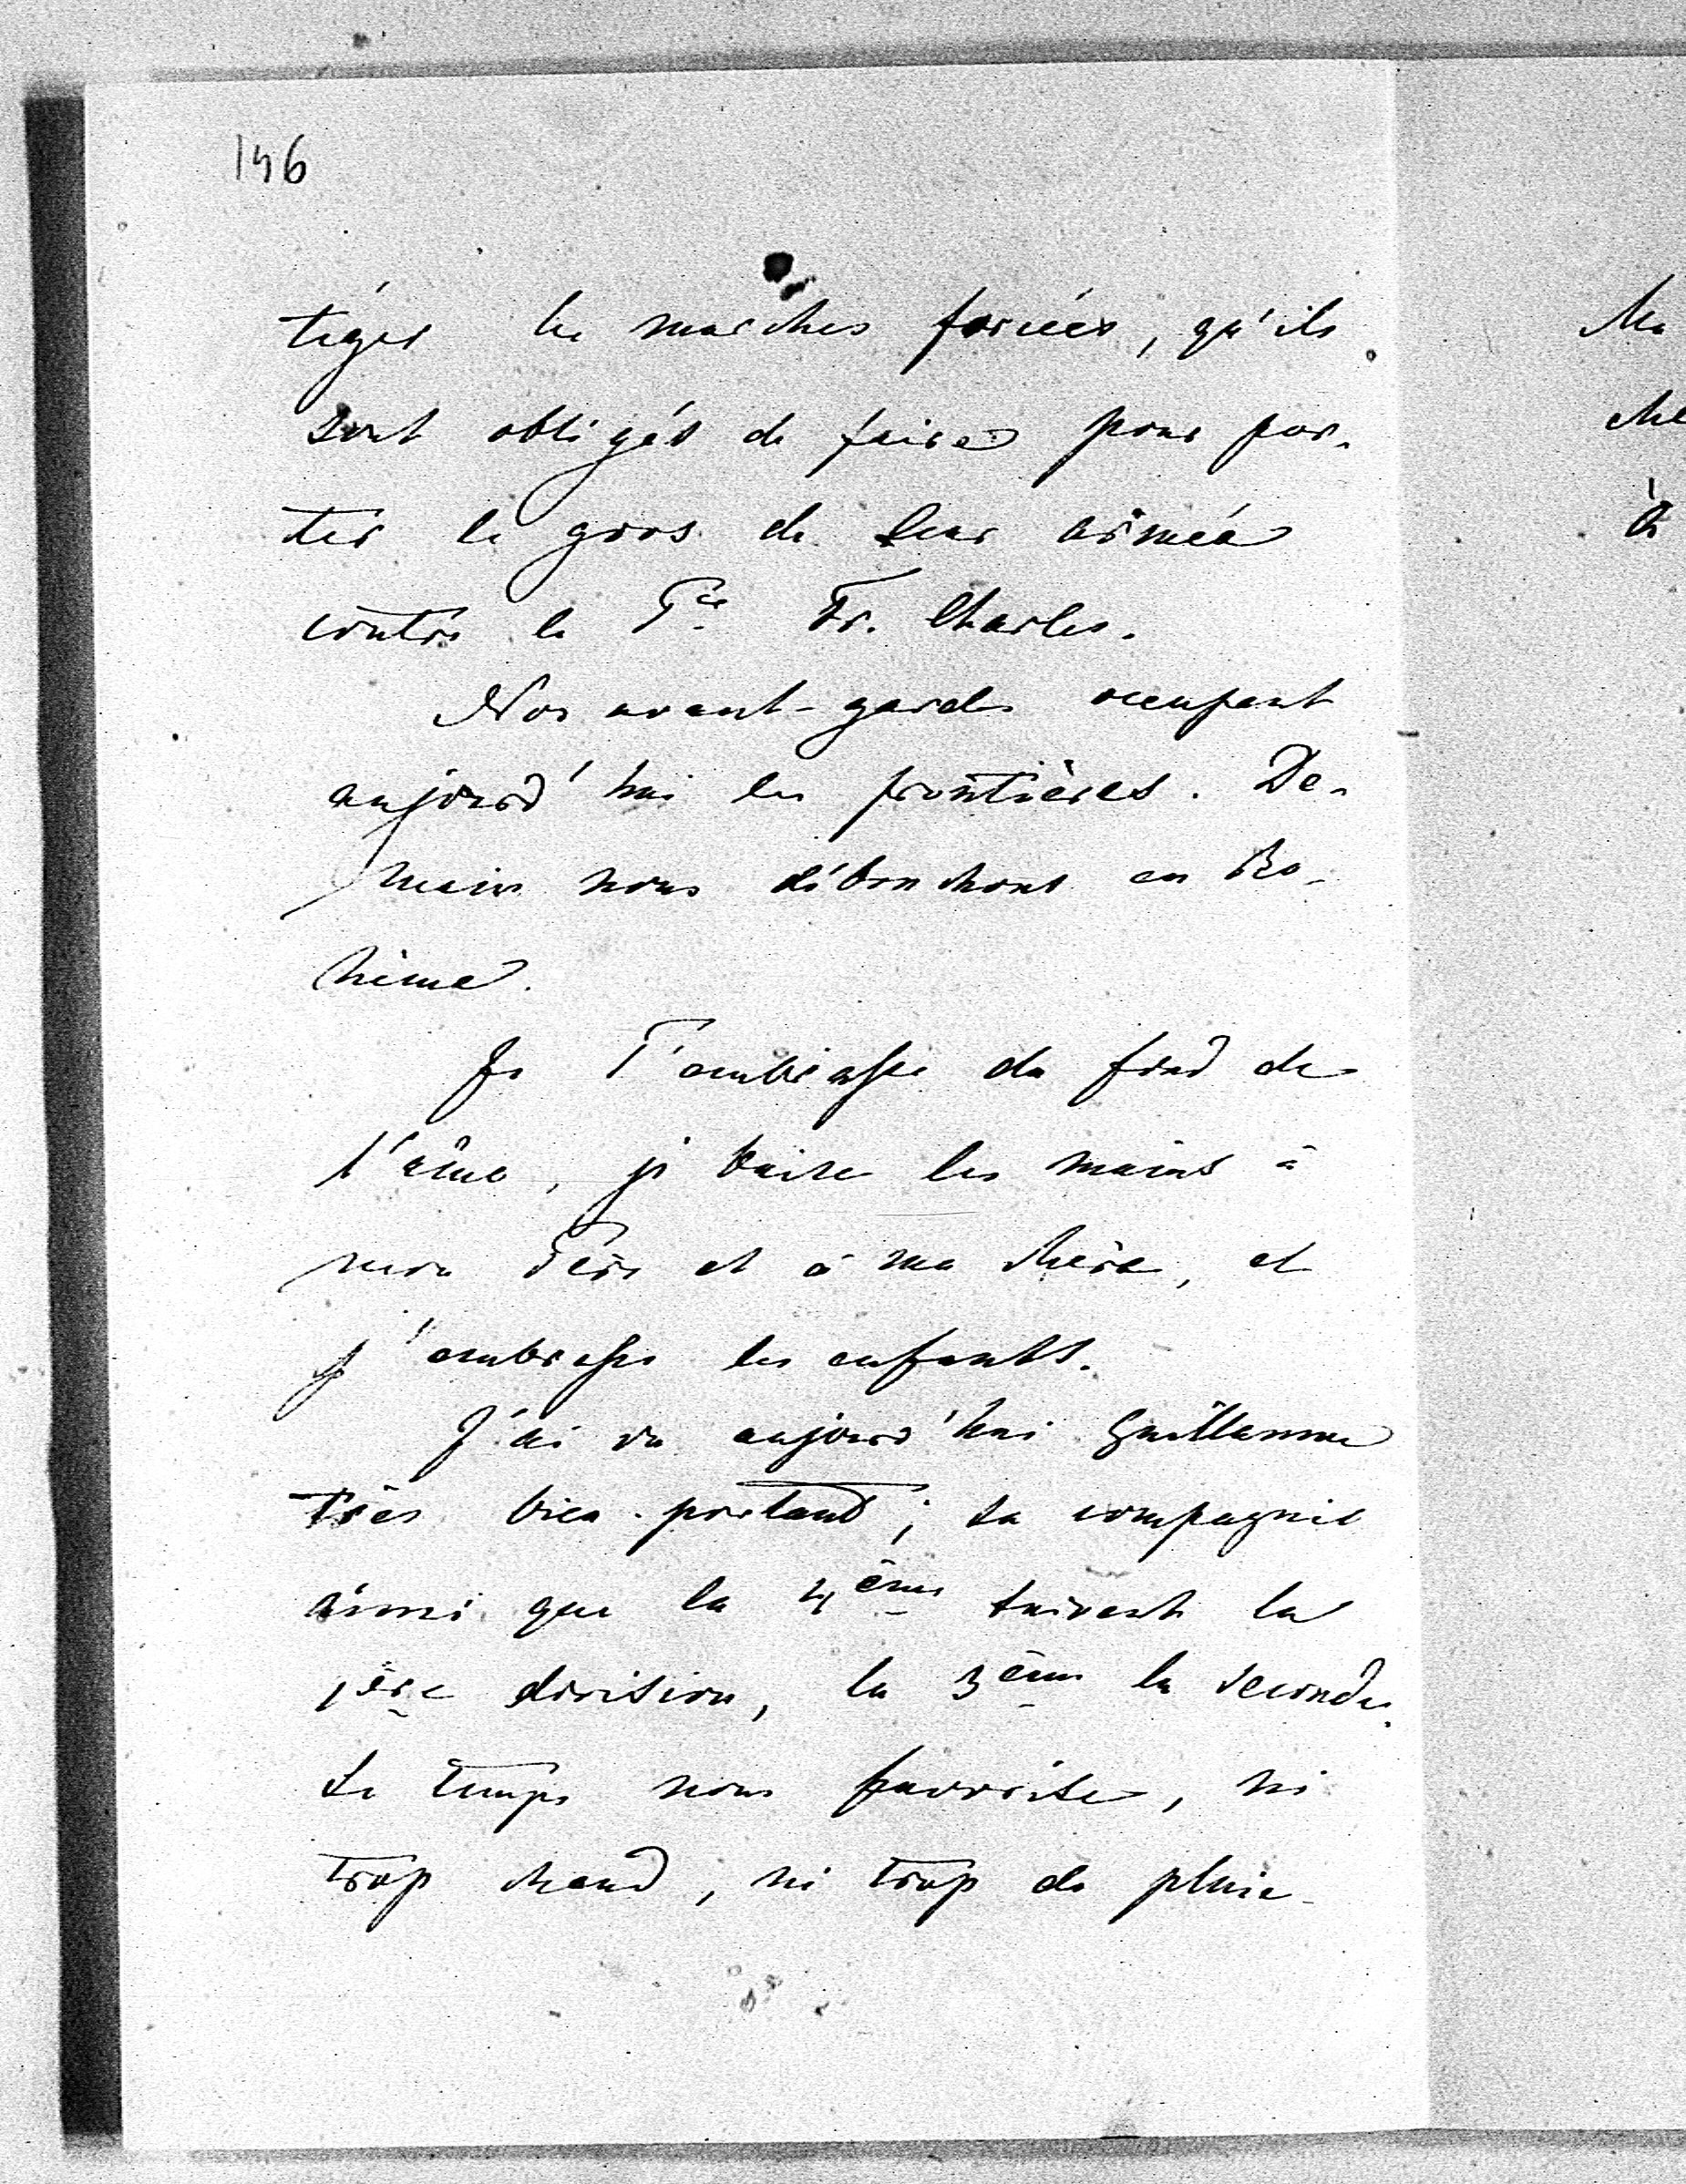 146
téger les marches forcées, qu'ils
sont obligés de faire pour por-
ter le gros de leur armée
contre le Pce Fr. Charles.
Nos avant-gardes occupent
aujourd'hui les frontières. De-
main nous débouchons en Bo-
hème.
Je T'embrasse du fond de
l'âme, je baise les mains à
mon Père et à ma Mère, et
j'embrasse les enfants.
J'ai vu aujourd'hui Guillaume
très bien portant; sa compagnie
ainsi que la 4ème suivent la
1ère division, la 3ème la seconde.
Le temps nous favorise, ni
trop chaud, ni trop de pluie